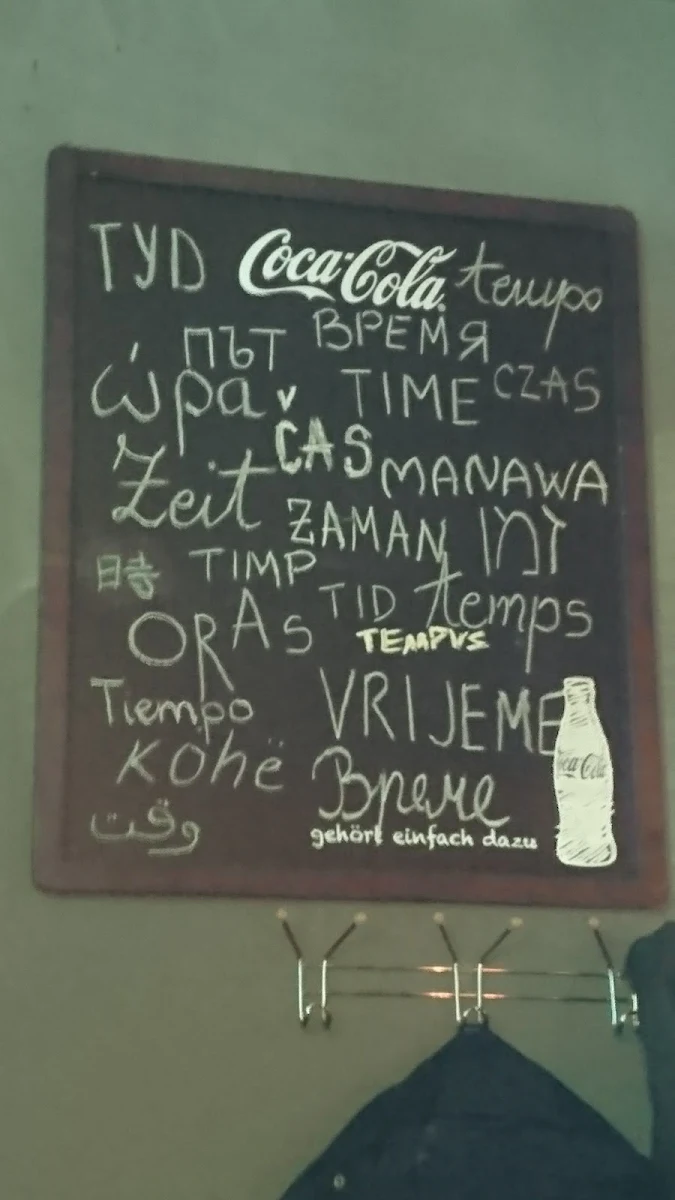 TYD Coca-Cola tempo
ПЪТ ВРЕМЯ
ώρα TIME CZAS
ČAS
Zeit MANAWA
ZAMAN זמן
時 TIMP
TID temps
ORAS TEMPVS
Tiempo VRIJEME
Kohë Време
Coca-Cola
وقت gehört einfach dazu